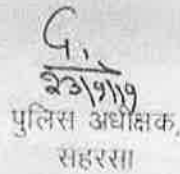 23/9/19
पुलिस अधीक्षक,
सहरसा